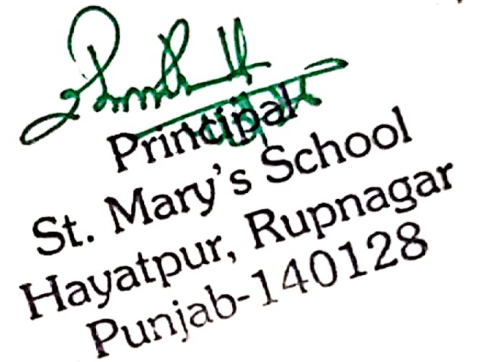 Principal
St. Mary's School
Hayatpur, Rupnagar
Punjab-140128